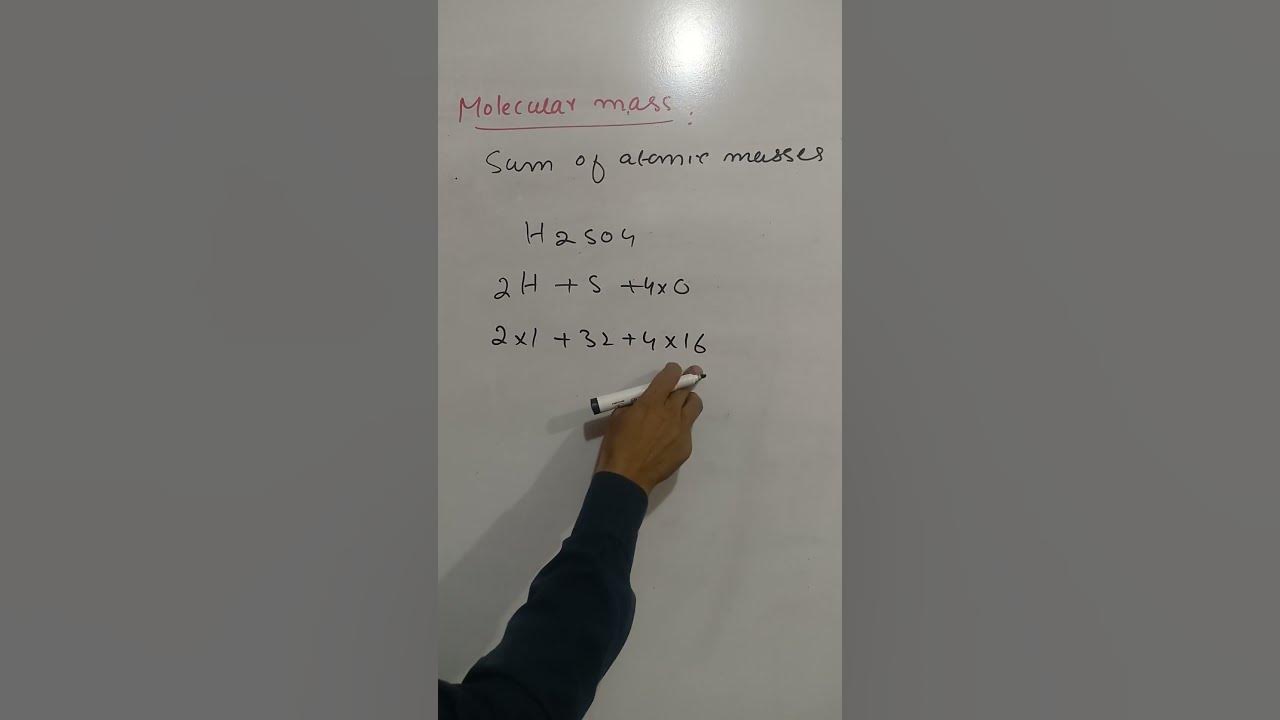 Molecular mass :
Sum of atomic masses
H2SO4
2H + S + 4×O
2×1 + 32 + 4×16